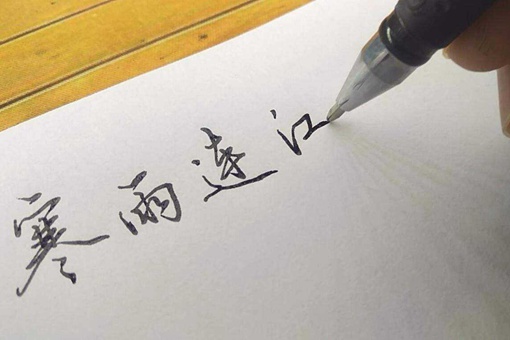 寒雨连江